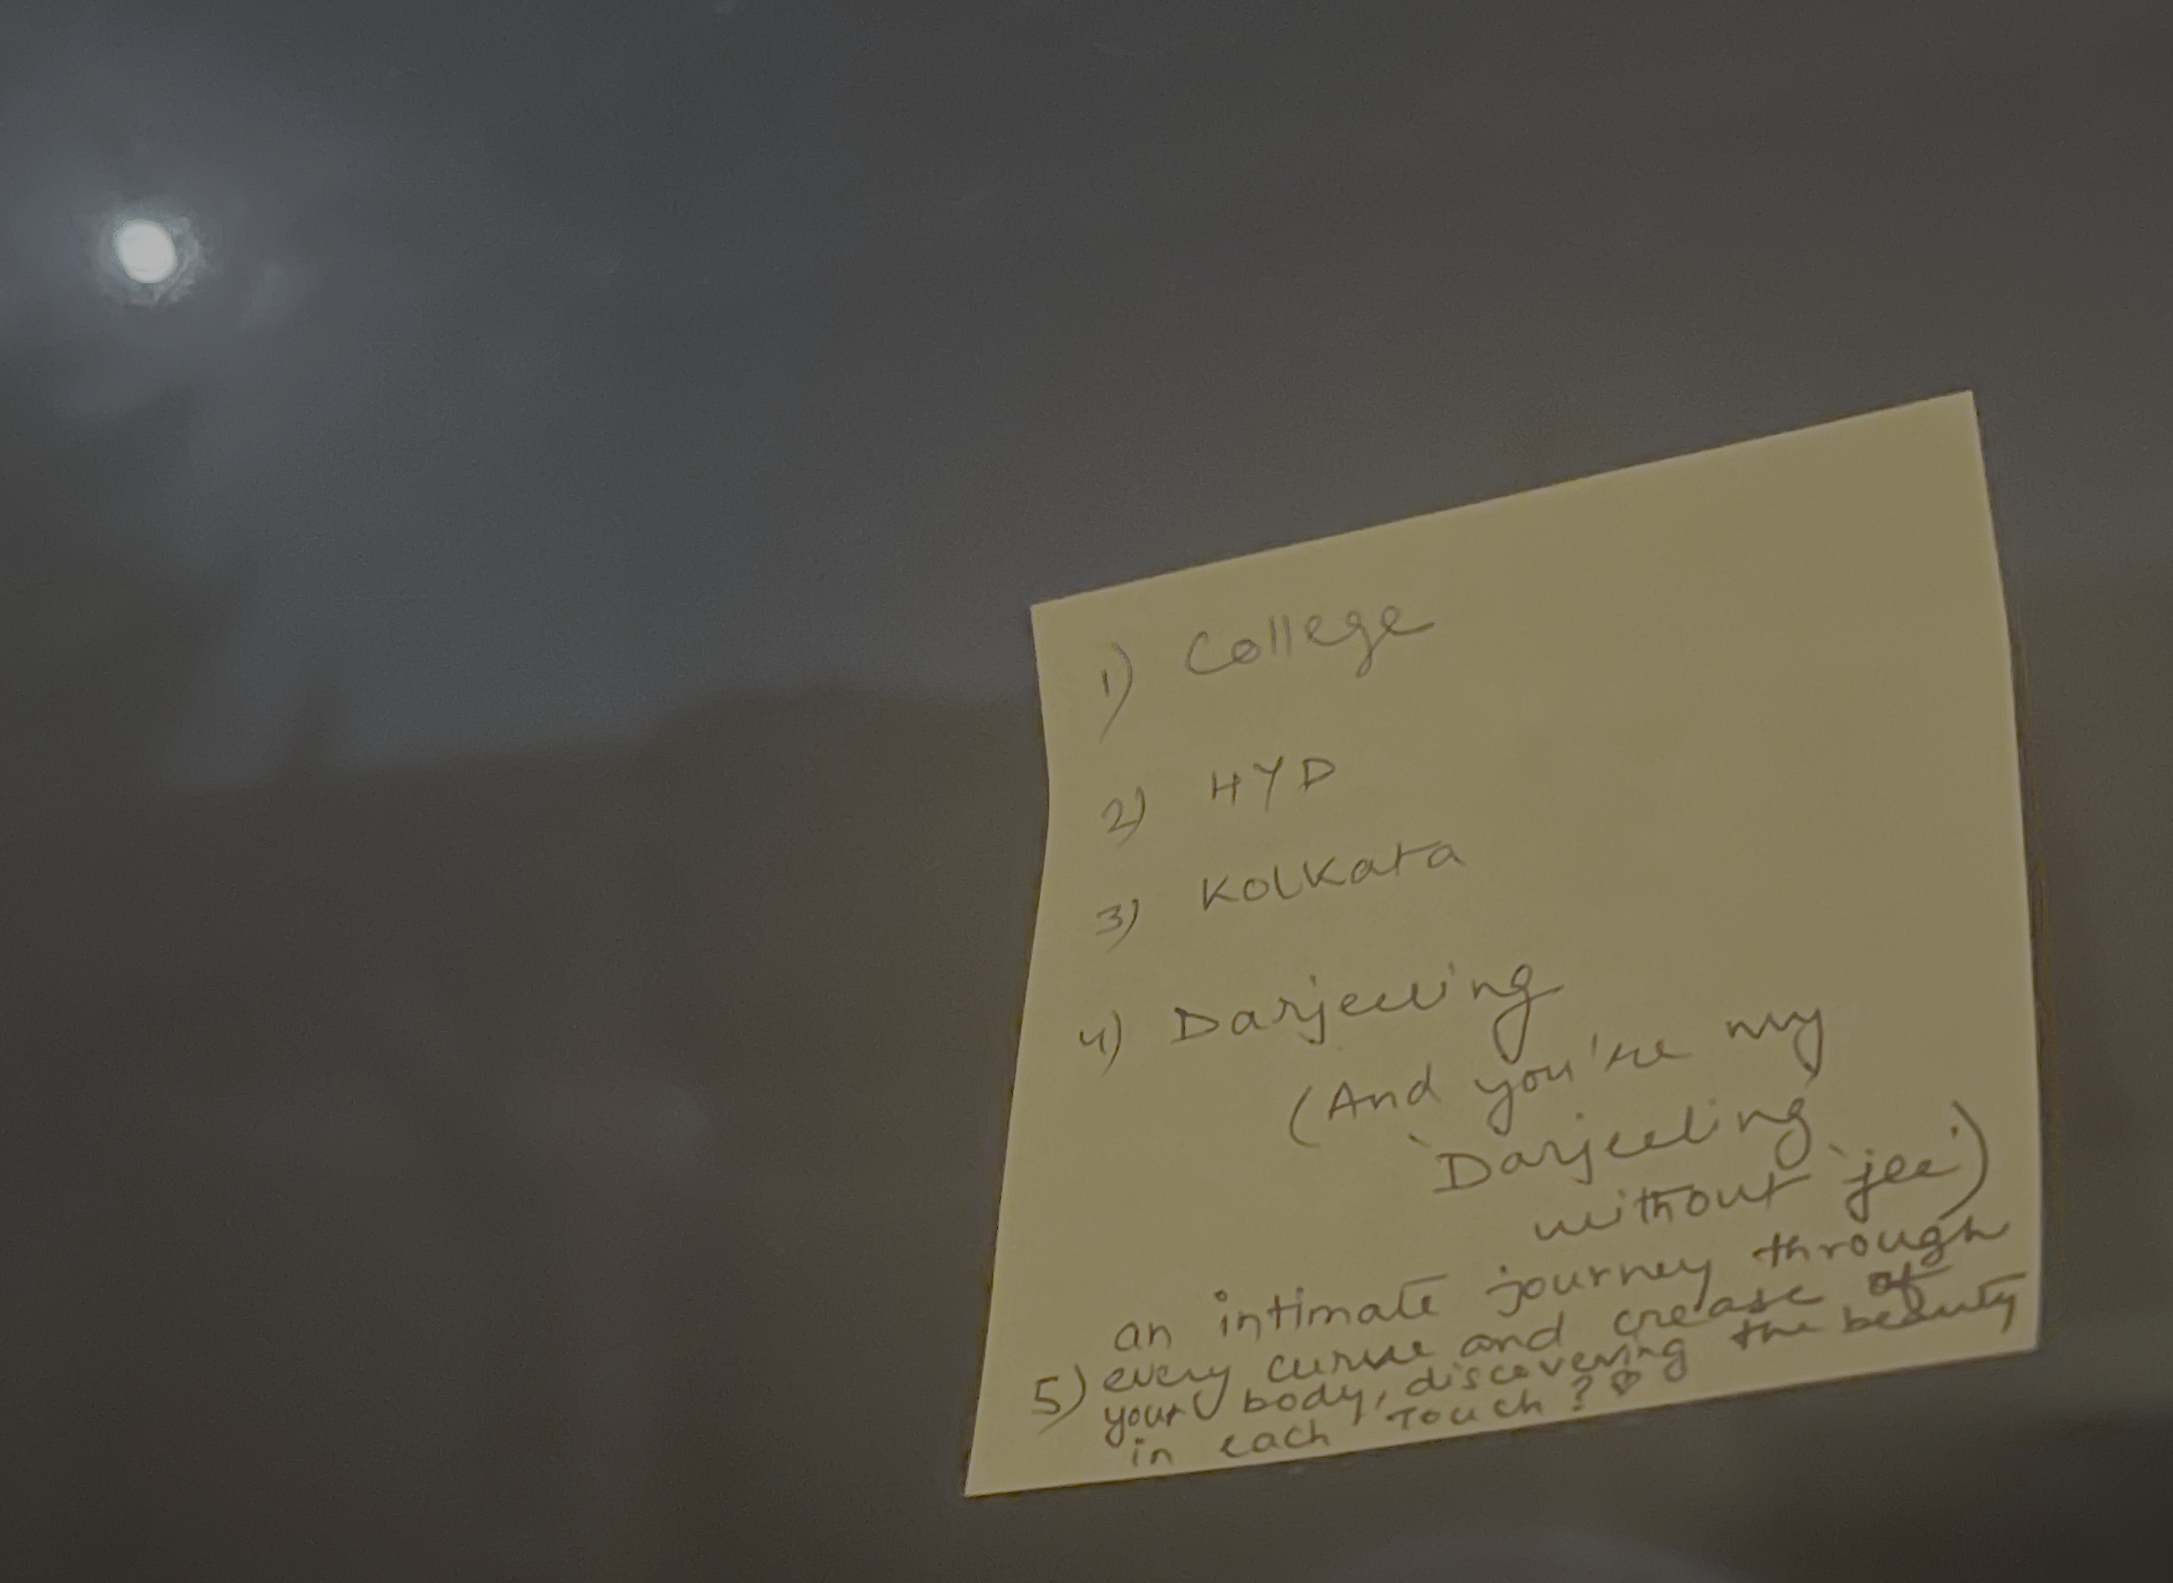 1) College
2) HYD
3) Kolkata
4) Darjeeling
(And you're my
'Darjeeling'
without 'jee')
an intimate journey through
5) every curve and crease of
your body, discovering the beauty
in each touch? ♡